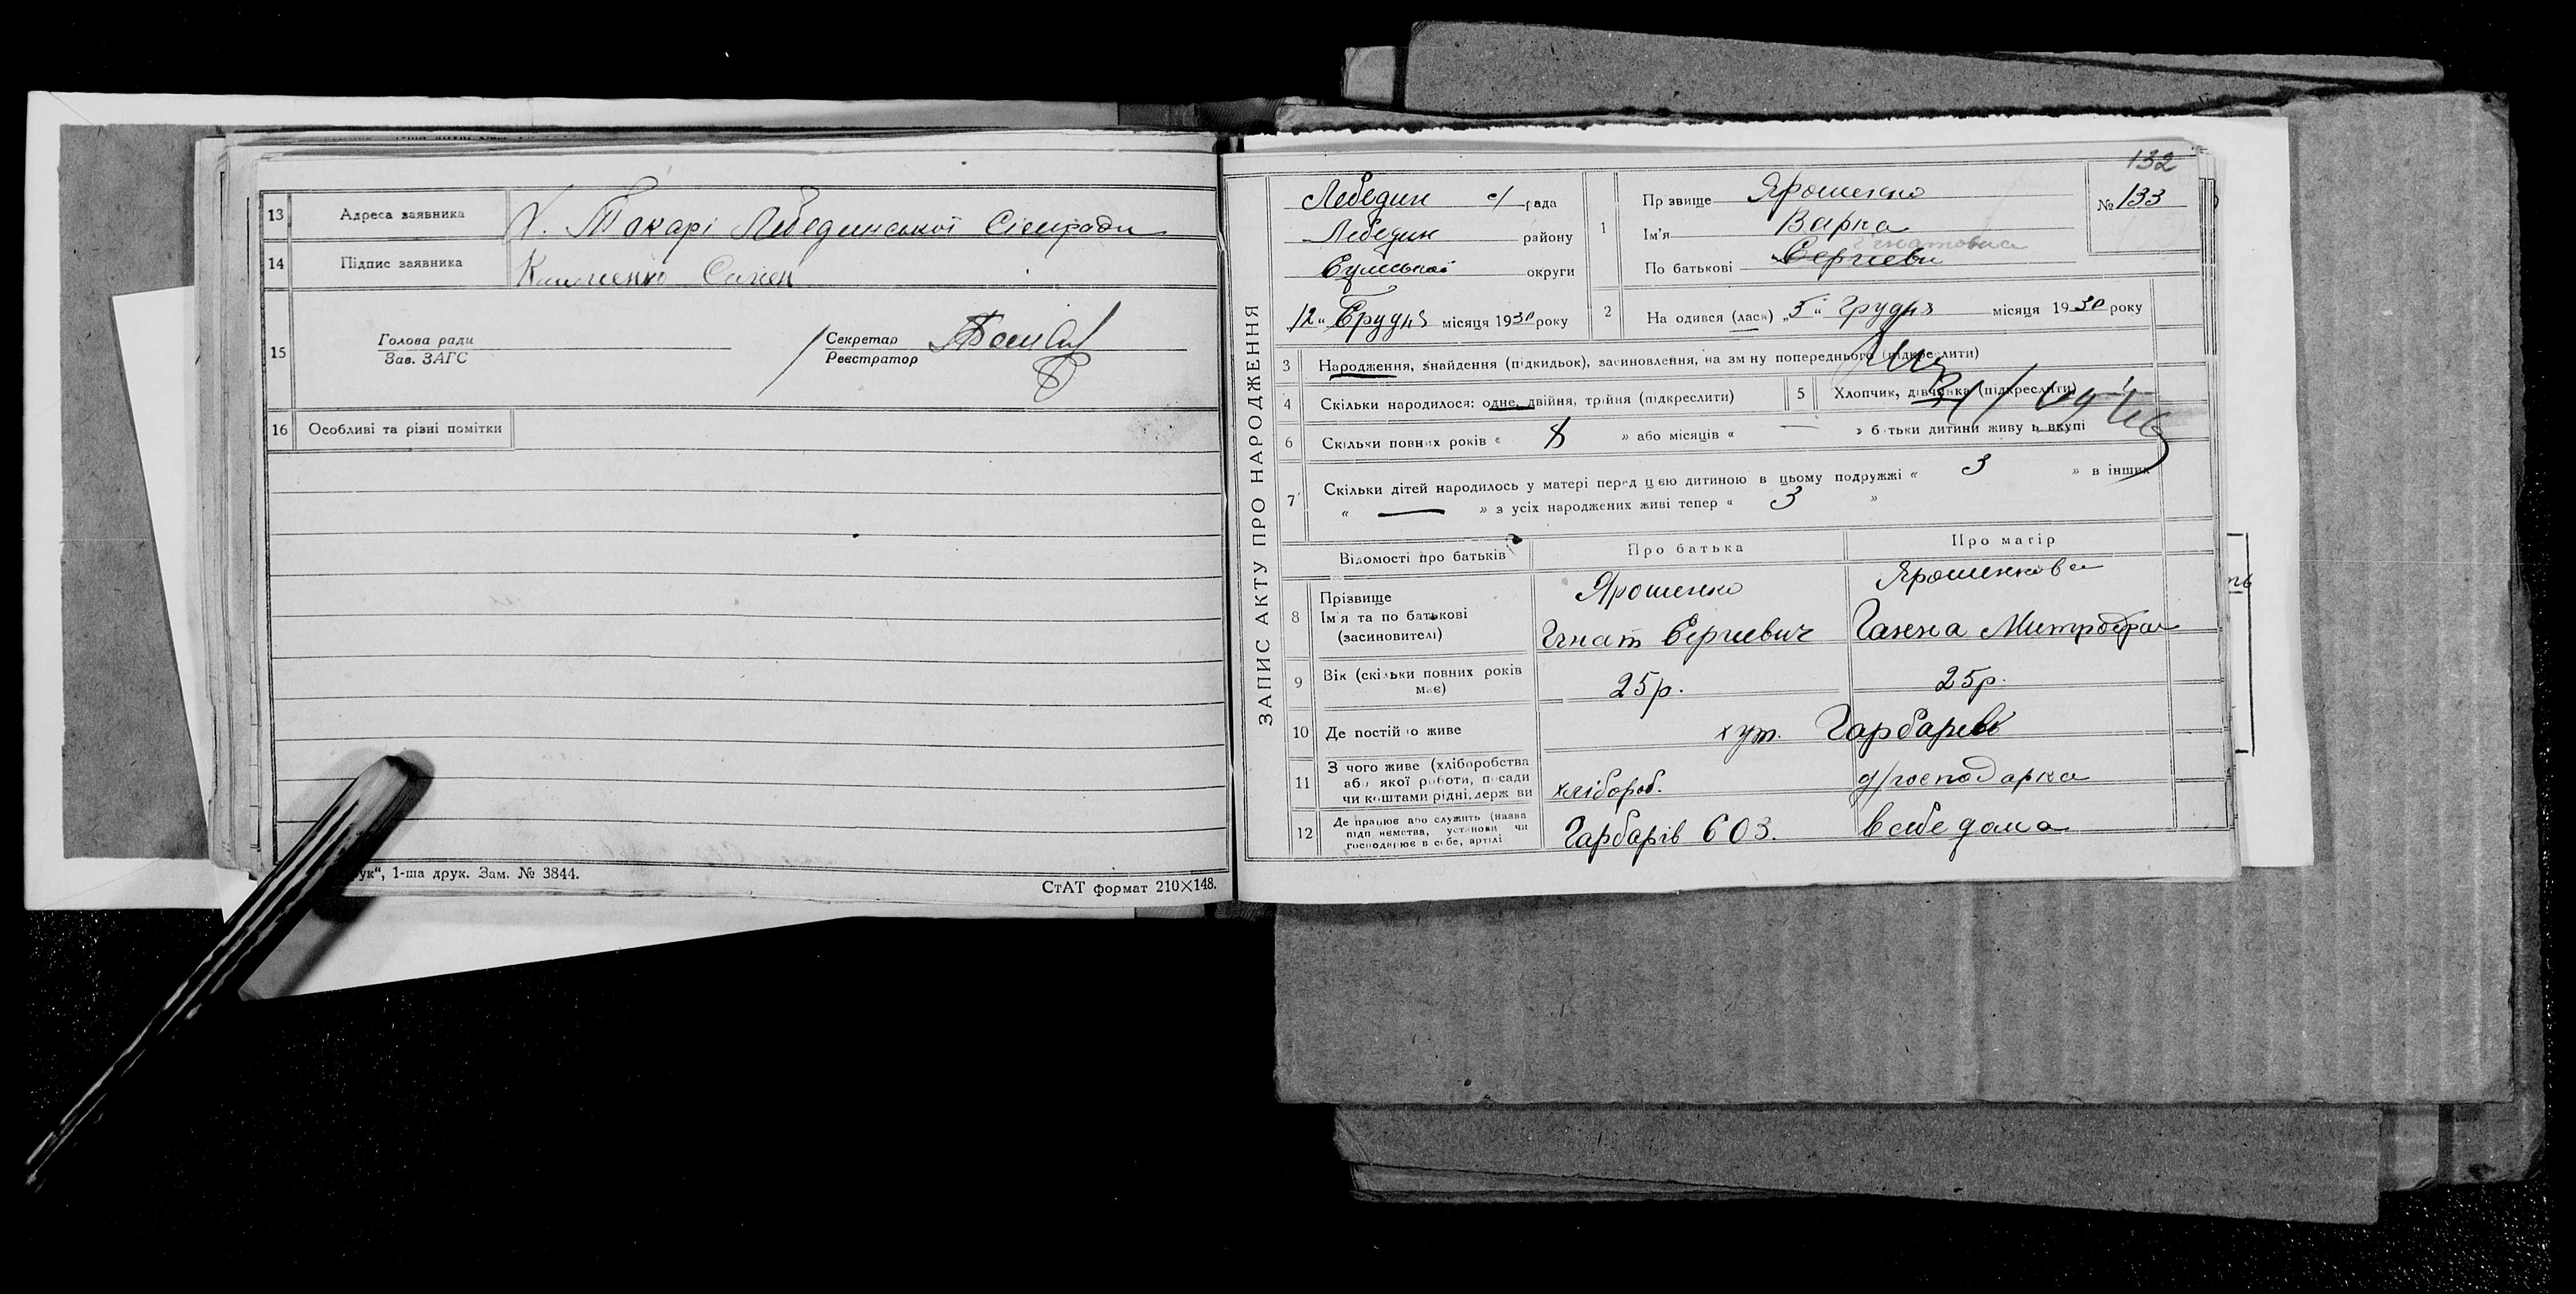 13 Адреса заявника Х. Токарі Лебединської Сільради
14 Підпис заявника Саген
15 Голова ради Секретар
Зав. ЗАГС Реєстратор
16 Особливі та різні помітки
ук“, 1-ша друк. Зам. № 3844.
СтАТ формат 210×148.
132
ЗАПИС АКТУ ПРО НАРОДЖЕННЯ
Лебедин с/рада
Лебедин району
Сумської округи
„12“ Грудня місяця 1930 року
1 Прзвище Ярошенко
Ім'я Варка
Гнатовна
По батькові Сергиевн
№ 133
2 На одився (лася) „5“ грудня місяця 1930 року
3 Народження, знайдення (підкидьок), засиновлення, на змну попереднього (підкреслити)
4 Скільки народилося: одне, двійня, трійня (підкреслити) 5 Хлопчик, дівчинка (підкреслити)
6 Скільки повних років « 8 » або місяців « — » батьки дитини живуть вкупі
7 Скільки дітей народилось у матері перед цею дитиною в цьому подружжі « 3 » в інших
« — » з усіх народжених живі тепер « 3 »
Відомості про батьків Про батька Про матір
8 Прізвище Ярошенко Ярошенкова
Ім'я та по батькові
(засиновителі) Гнат Сергиевич Ганна Митрофан
9 Вік (скільки повних років має) 25р. 25р.
10 Де постійно живе хут. Гарбарів
11 З чого живе (хліборобства
або якої роботи, посади
чи коштами рідні, держ ви хлібороб. д/господарка
12 Де працює або служить (назва
підп иємства, установи чи
господарює в себе, артілі Гарбарів СОЗ. в себе дома